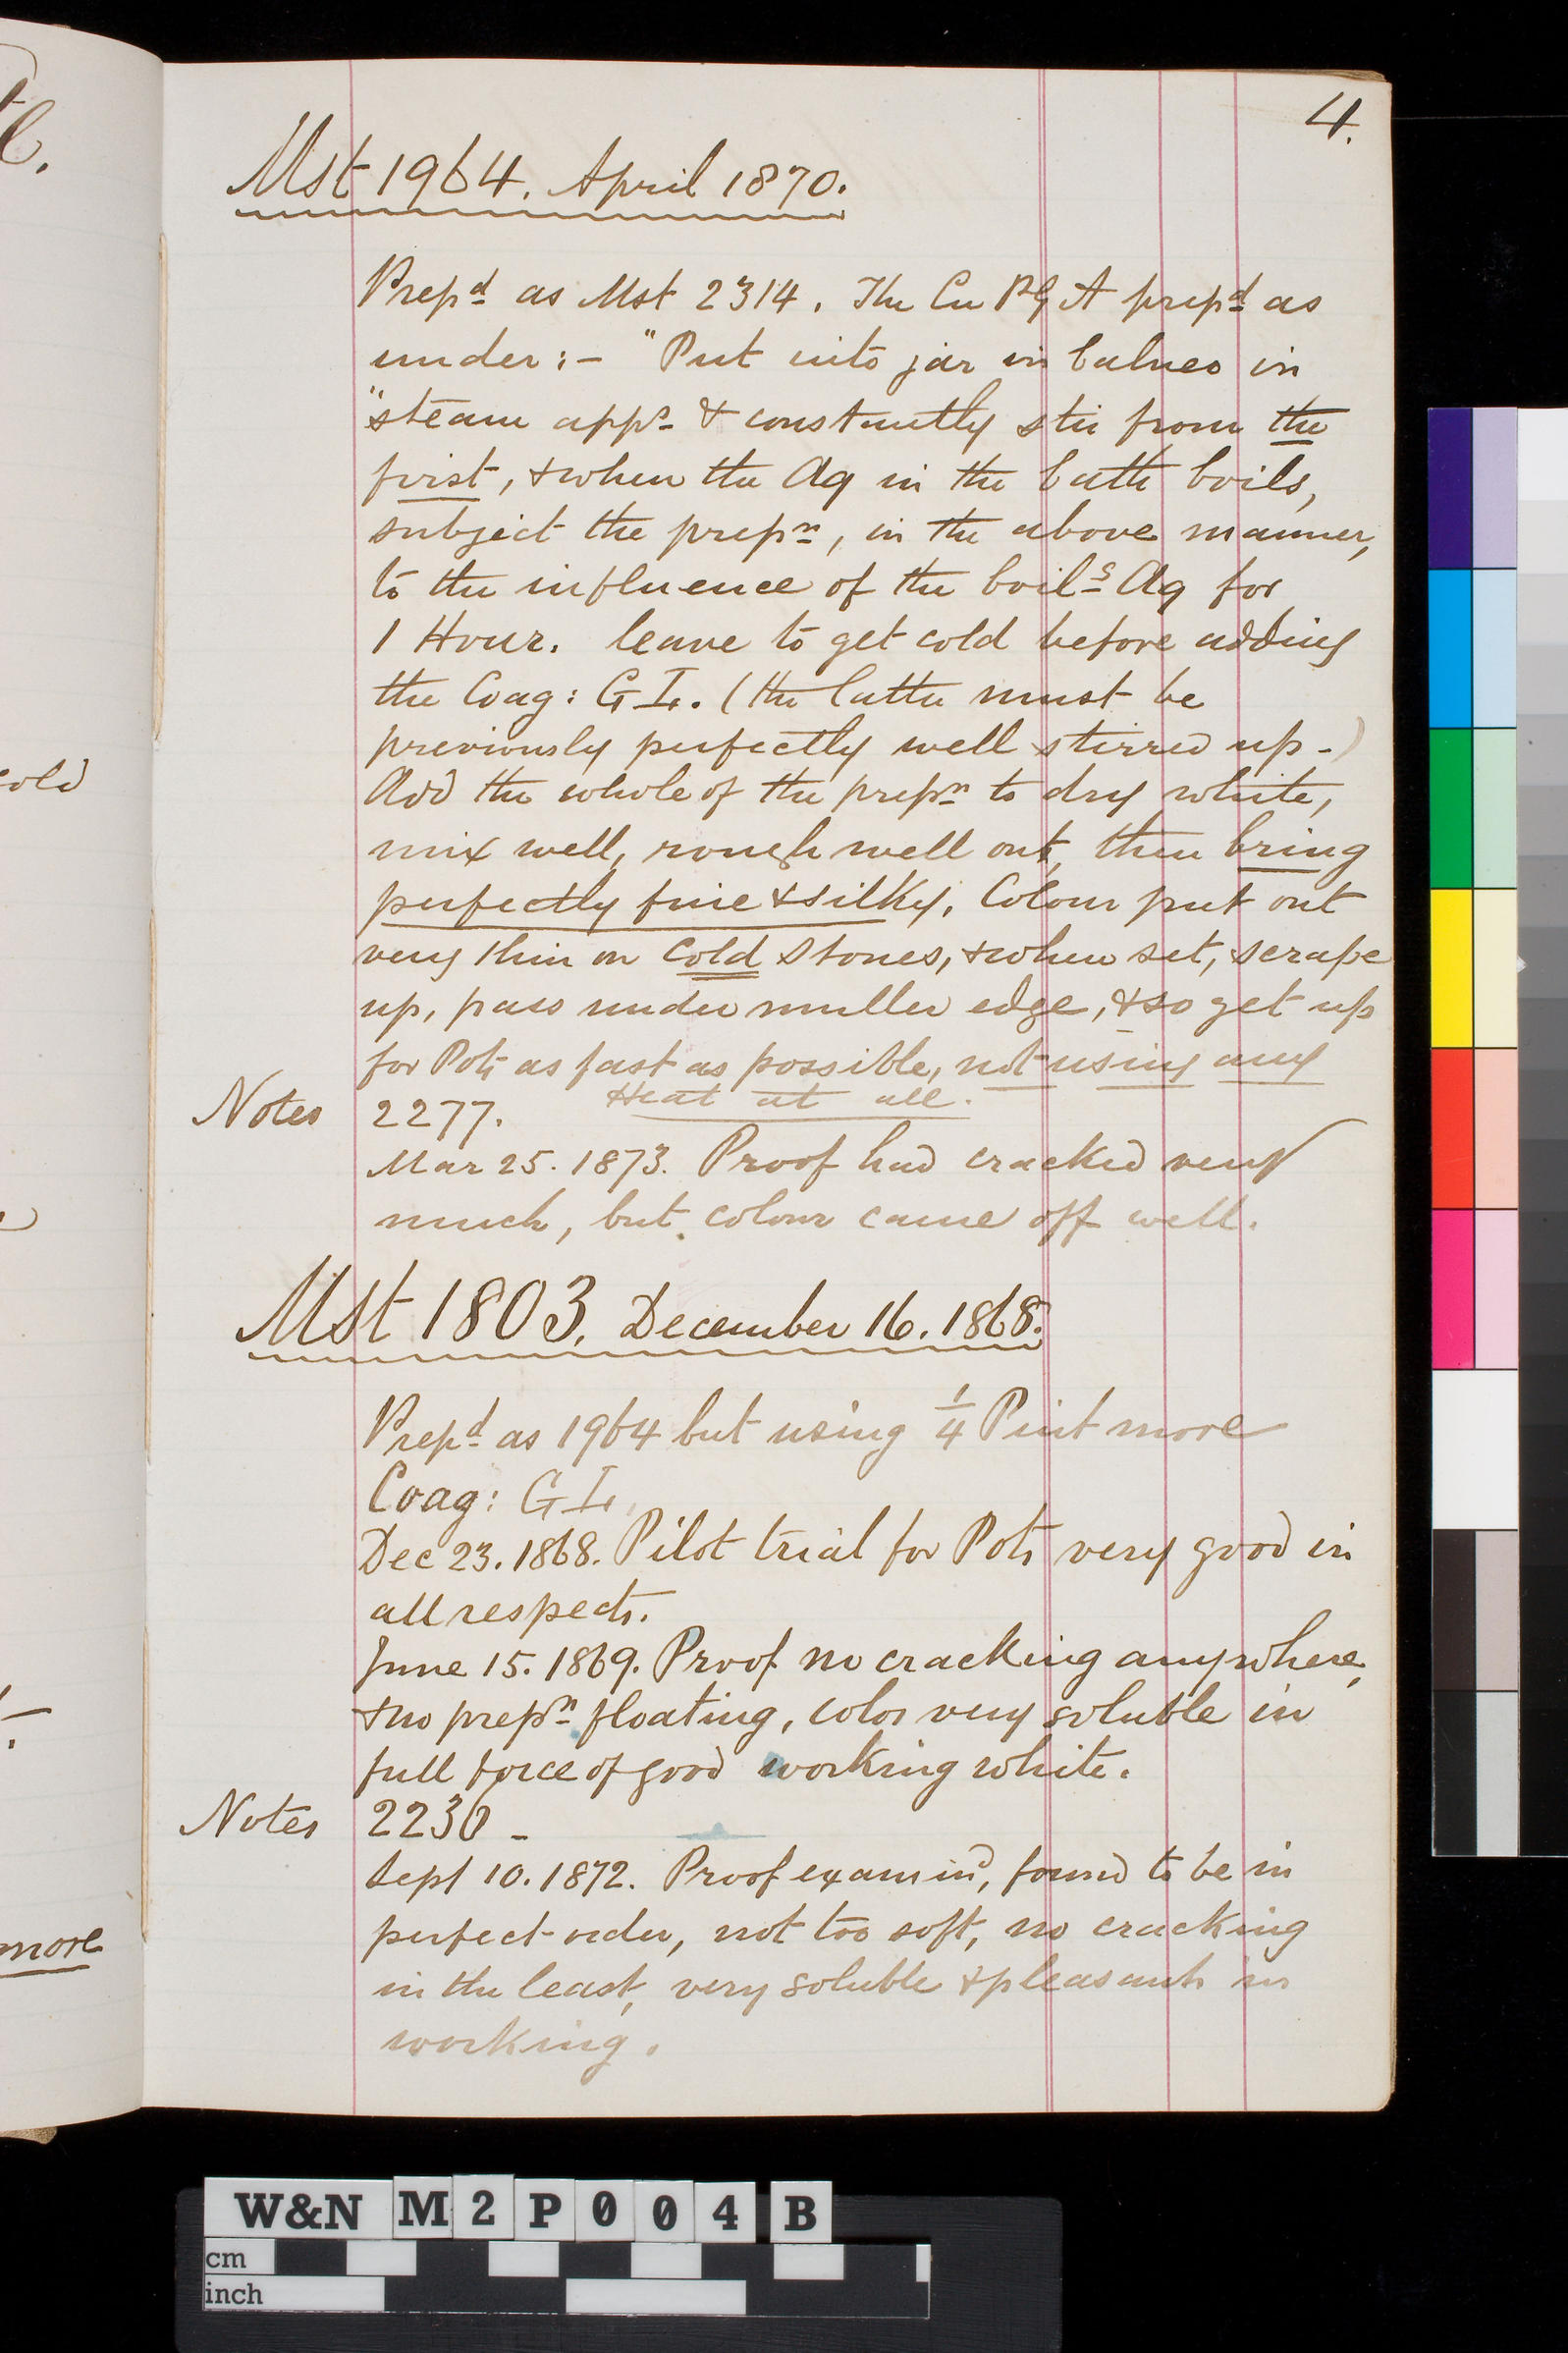 4.
Mst 1964. April 1870.
Prepd as Mst 2314. The Cu PG A prepd as
under:- "Put into jar in balneo in
"steam appr & constantly stir from the
first, & when the Aq in the bath boils,
subject the prepn, in the above manner,
to the influence of the boilg Aq for
1 Hour. leave to get cold before adding
the Coag: G L. (the latter must be
previously perfectly well stirred up-)
Add the whole of the prepn to dry white,
mix well, rough well out, then bring
perfectly fine & silky. Colour put out
very thin on cold stones, & when set, scrape
up, pass under muller edge, & so get up
for Pots as fast as possible, not using any
Heat at all.
Notes 2277.
Mar 25. 1873. Proof had cracked very
much, but colour came off well.
Mst 1803. December 16. 1868.
Prepd as 1964 but using 1/4 Pint more
Coag: G L
Dec 23. 1868. Pilot trial for Pots very good in
all respects.
June 15. 1869. Proof no cracking anywhere,
& no prepn floating, color very soluble in
full force of good working white.
Notes 2236 -
Sept 10. 1872. Proof examind, found to be in
perfect order, not too soft, no cracking
in the least, very soluble & pleasant in
working.
cold
more
W&N M2P004B
cm
inch